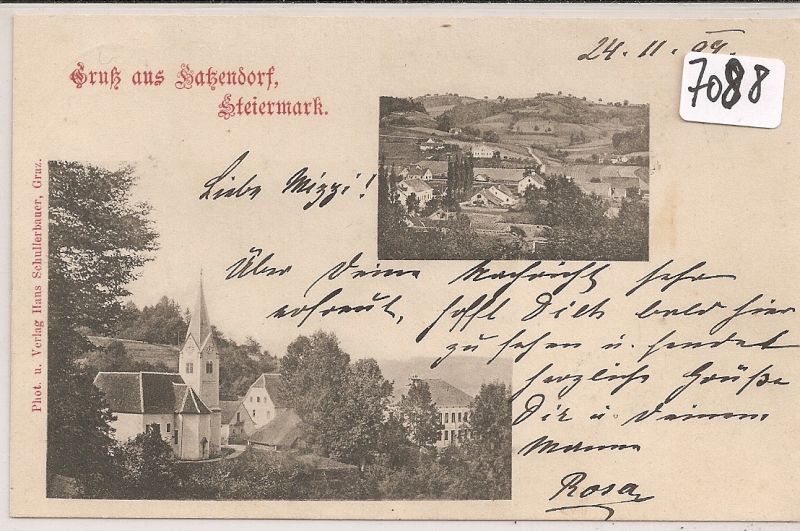 24. 11. 09.
7088
Gruß aus Hatzendorf,
Steiermark.
Phot. u. Verlag Hans Schullerbauer, Graz.
Liebe Mizzi!
Über Deine Nachricht sehr
erfreut, hofft Dich bald hier
zu sehen u. sendet
herzliche Grüße
Dir u. Deinem
Manne
Rosa